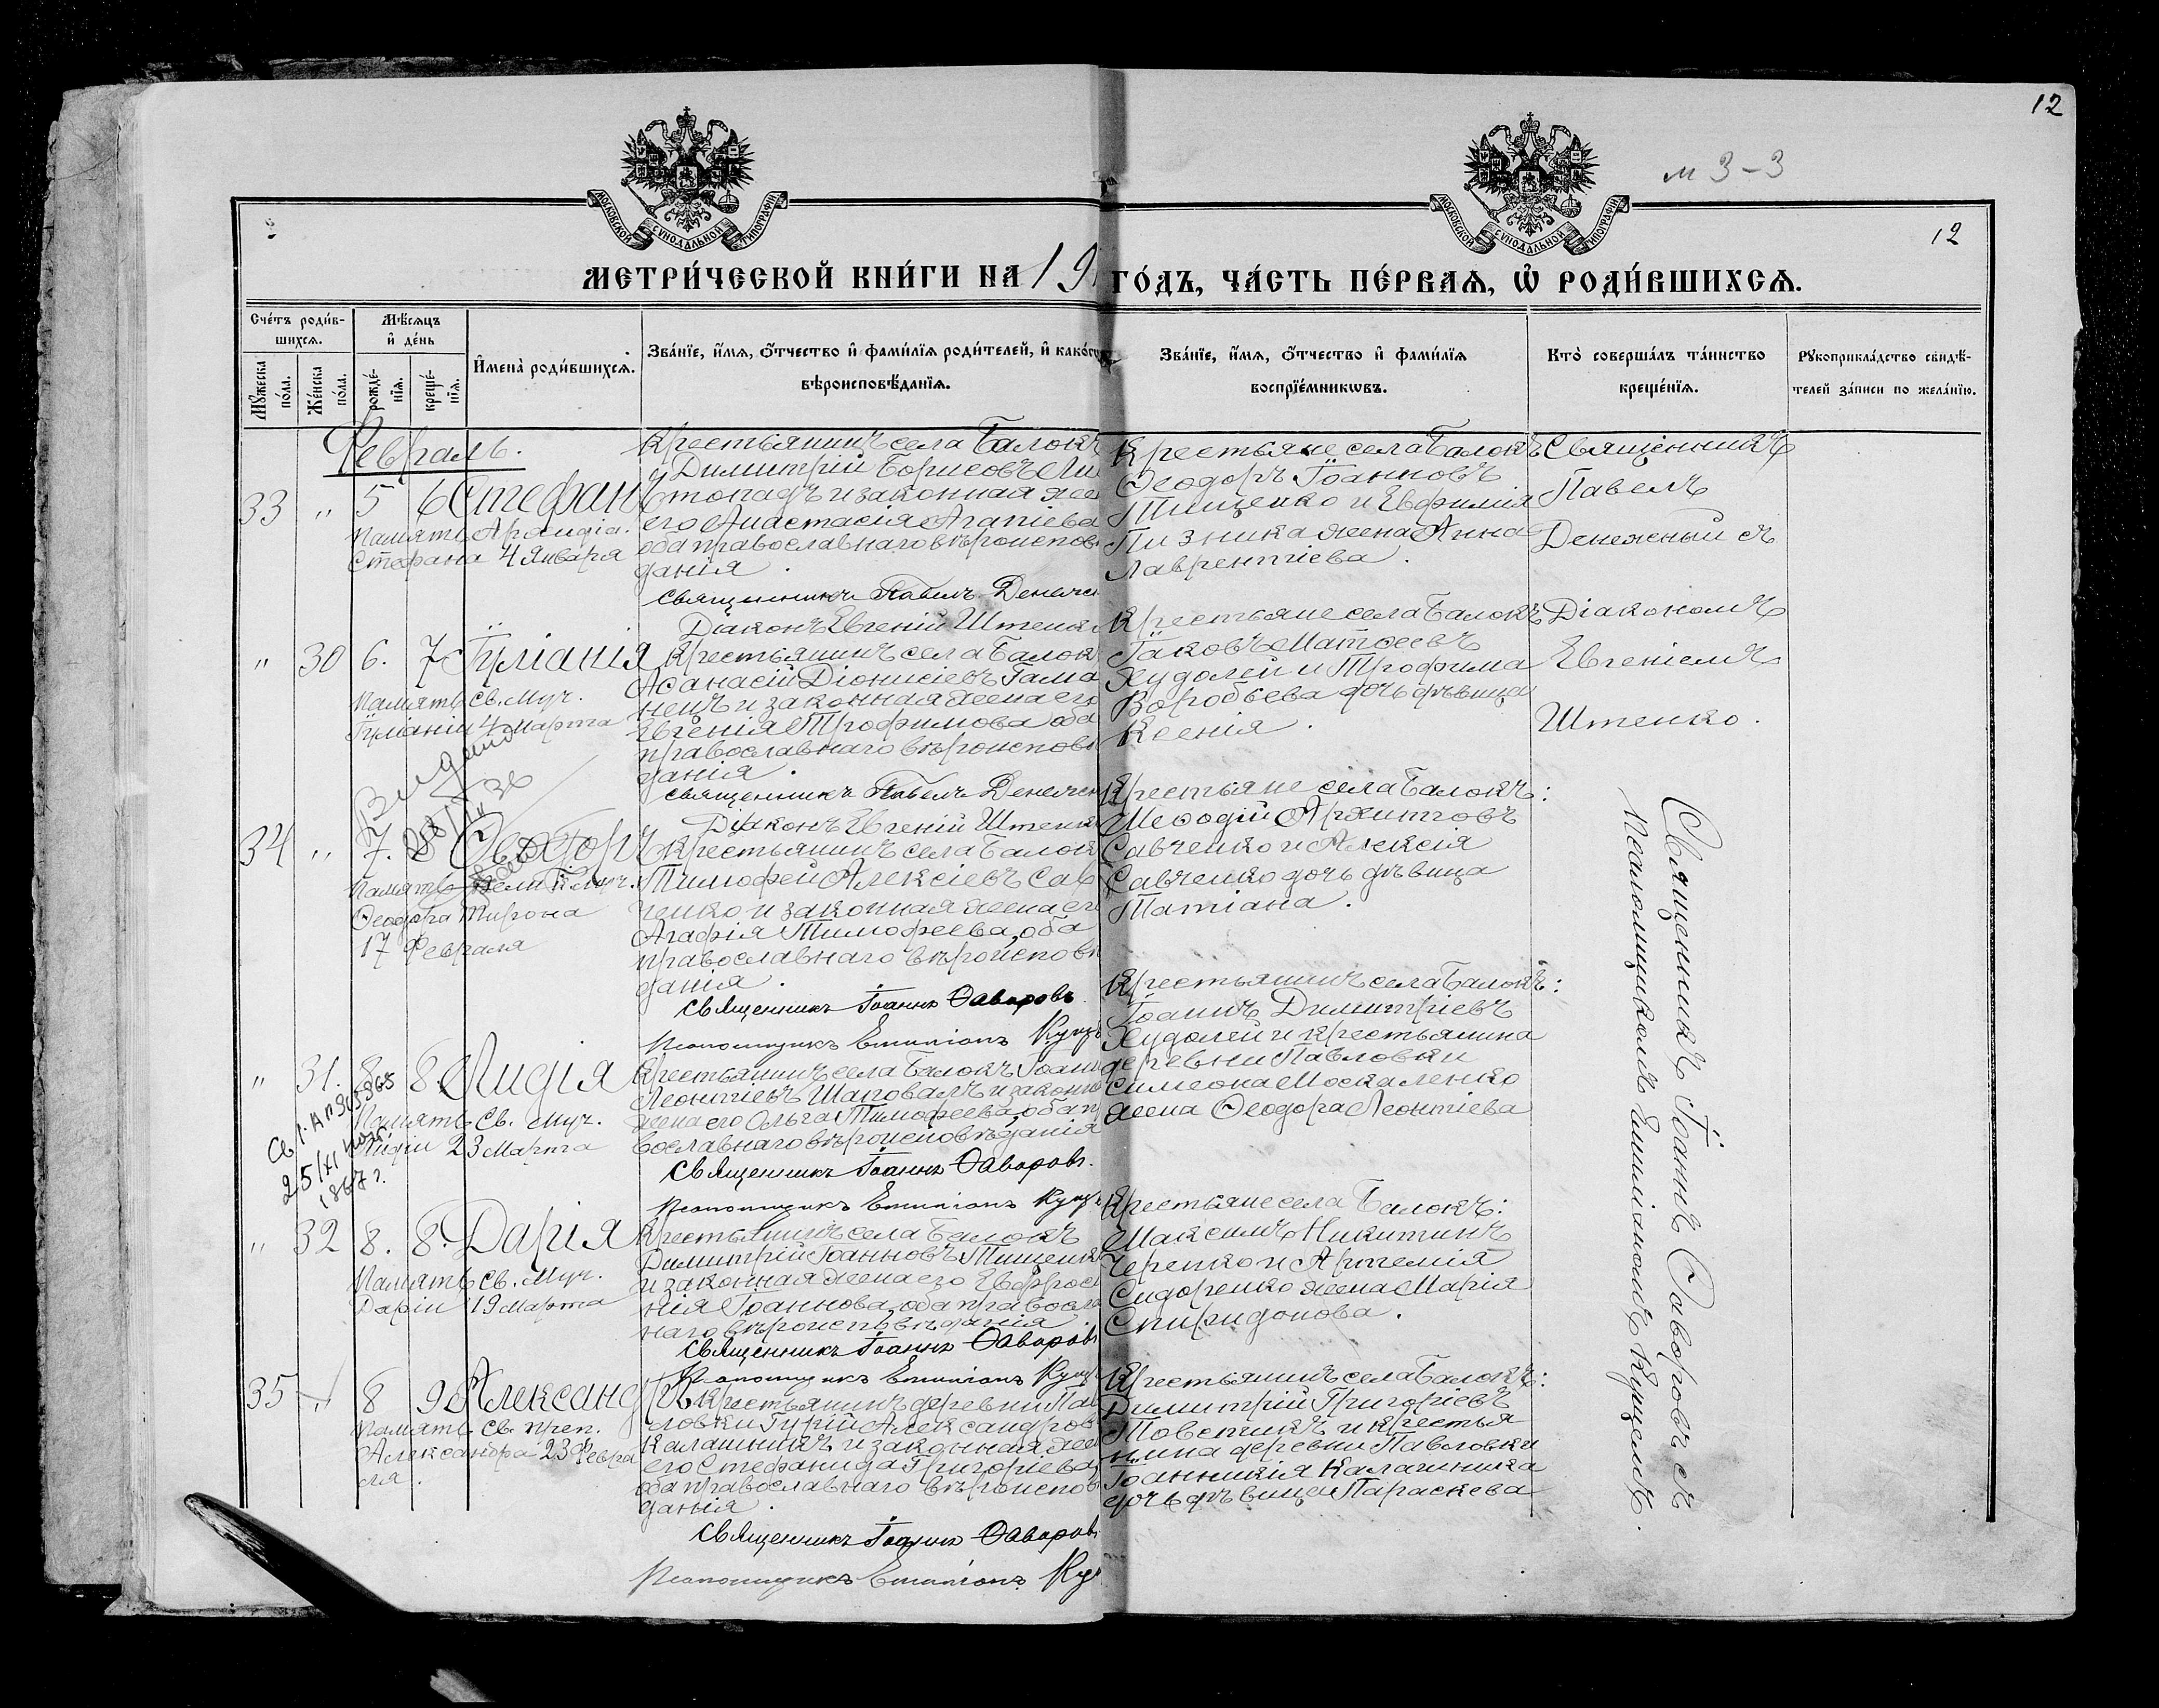 12
м 3-3
МОСКОВСКОЙ СѴНОДАЛЬНОЙ ТИПОГРАФІИ
МОСКОВСКОЙ СѴНОДАЛЬНОЙ ТИПОГРАФІИ
12
МЕТРИ́ЧЕСКОЙ КНИ́ГИ НА 19
ГО́ДЪ, ЧА́СТЬ ПЕ́РВАѦ, Ѡ҆ РОДИ́ВШИХСѦ.
Сче́тъ роди́в-
шихсѧ.
Мѣ́сѧцъ
и҆ де́нь
Мꙋ́жеска
по́ла.
Же́нска
по́ла.
рожде́-
нїѧ.
креще́-
нїѧ.
И҆мена̀ роди́вшихсѧ.
Зва́нїе, и҆́мѧ, ѻ҆́тчество и҆ фами́лїѧ роди́телей, и҆ како́гѡ
вѣроисповѣ́данїѧ.
Зва́нїе, и҆́мѧ, ѻ҆́тчество и҆ фами́лїѧ
воспрїе́мникѡвъ.
Кто̀ соверша́лъ та́инство
креще́нїѧ.
Рꙋкоприкла́дство свидѣ́-
телей за́писи по жела́нїю.
Февраль.
33 " 5 6 Стефанъ
Память Архидіа.
Стефана 4 Января
Крестьянинъ села Балокъ
Димитрій Борисовъ Ли
стопадъ и законная же
его Анастасія Агапіева
оба православнаго вѣроиспов
данія.
Священникъ Павелъ Денеже
Діаконъ Евгеній Штенк
Крестьяне села Балокъ
Ѳеодоръ Іоанновъ
Тищенко и Евфимія
Пизника жена Анна
Лаврентіева.
Священникъ
Павелъ
Денежный съ
" 30 6. 7 Іуліанія
Память Св. Муч.
Іуліаніи 4 Марта
Крестьянинъ села Балок
Аѳанасій Діонисіевъ Гама
нецъ и законная жена его
Евгенія Трофимова оба
православнаго вѣроиспов
данія.
Священникъ Павелъ Денежн
Діаконъ Евгеній Штенк
Крестьяне села Балокъ
Іаковъ Матѳеевъ
Худолей и Трофима
Воробьева дочь дѣвица
Ксенія.
Діакономъ
Евгеніемъ
Штенко.
34 " 7. 8 Ѳеодоръ
Память Велик. Муч.
Ѳеодора Тирона
17 Февраля
Крестьянинъ села Балок
Тимофей Алексіевъ Сав
ченко и законная жена ег
Агафія Тимофеева, оба
православнаго вѣроисповѣ
данія.
Священникъ Іоаннъ Ѳаворовъ.
Псаломщикъ Емиліанъ Куц
Крестьяне села Балокъ:
Меѳодій Архиповъ
Савченко и Алексія
Савченко дочь дѣвица
Татіана.
" 31. 8 8. Лидія
Память Св. Муч.
Лидіи 23 Марта
25/XI
Крестьянинъ села Балокъ Іоанн
Леонтіевъ Шаповалъ и законн
жена его Ольга Тимофеева, оба п
вославнаго вѣроисповѣданія
Священникъ Іоаннъ Ѳаворовъ.
Псаломщикъ Емиліанъ Куц
Крестьянинъ села Балокъ:
Іоаннъ Димитріевъ
Худолей и крестьянина
деревни Павловки
Симеона Москаленко
жена Ѳеодора Леонтіева
" 32 8. 8. Дарія
Память Св. Муч.
Даріи 19 Марта
Крестьянинъ села Балокъ
Димитрій Іоанновъ Тищенк
и законная жена его Евфрос
нія Іоаннова, оба правосла
наго вѣроисповѣданія
Священникъ Іоаннъ Ѳаворовъ
Псаломщикъ Емиліанъ Куц
Крестьяне села Балокъ:
Максимъ Никитинъ
Черенко и Артемія
Сидоренко жена Марія
Спиридонова.
35 " 8 9 Александръ
Память Св. преп.
Александра 23 Февра
ля.
Крестьянинъ деревни Па
ловки Гурій Александров
Калашникъ и законная же
его Стефанида Григоріева,
оба православнаго вѣроиспов
данія.
Священникъ Іоаннъ Ѳаворов
Псаломщикъ Емиліанъ Ку
Крестьянинъ села Балокъ:
Димитрій Григоріевъ
Товстикъ и крестья
нина деревни Павловки
Іоанникія Калашника
дочь дѣвица Параскева
Священникъ Іоаннъ Ѳаворовъ съ
Псаломщикомъ Емиліаномъ Куцемъ.